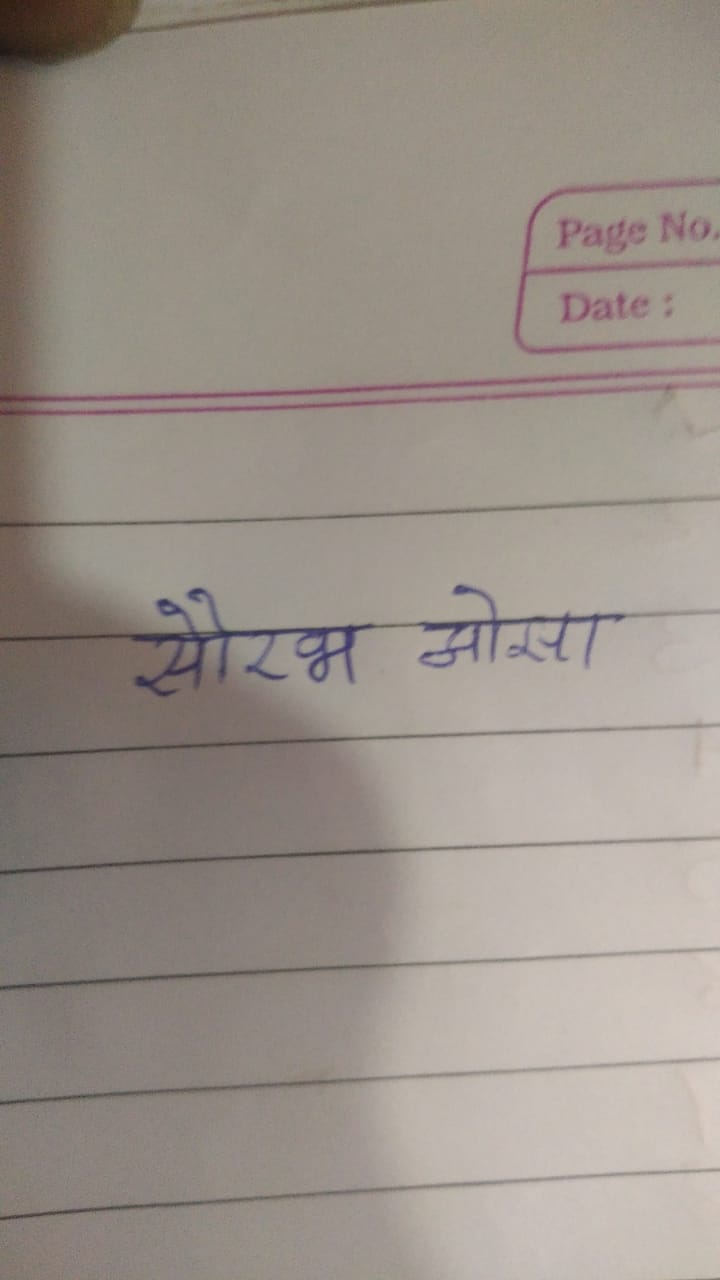 Page No.
Date :
सौरभ ओसा